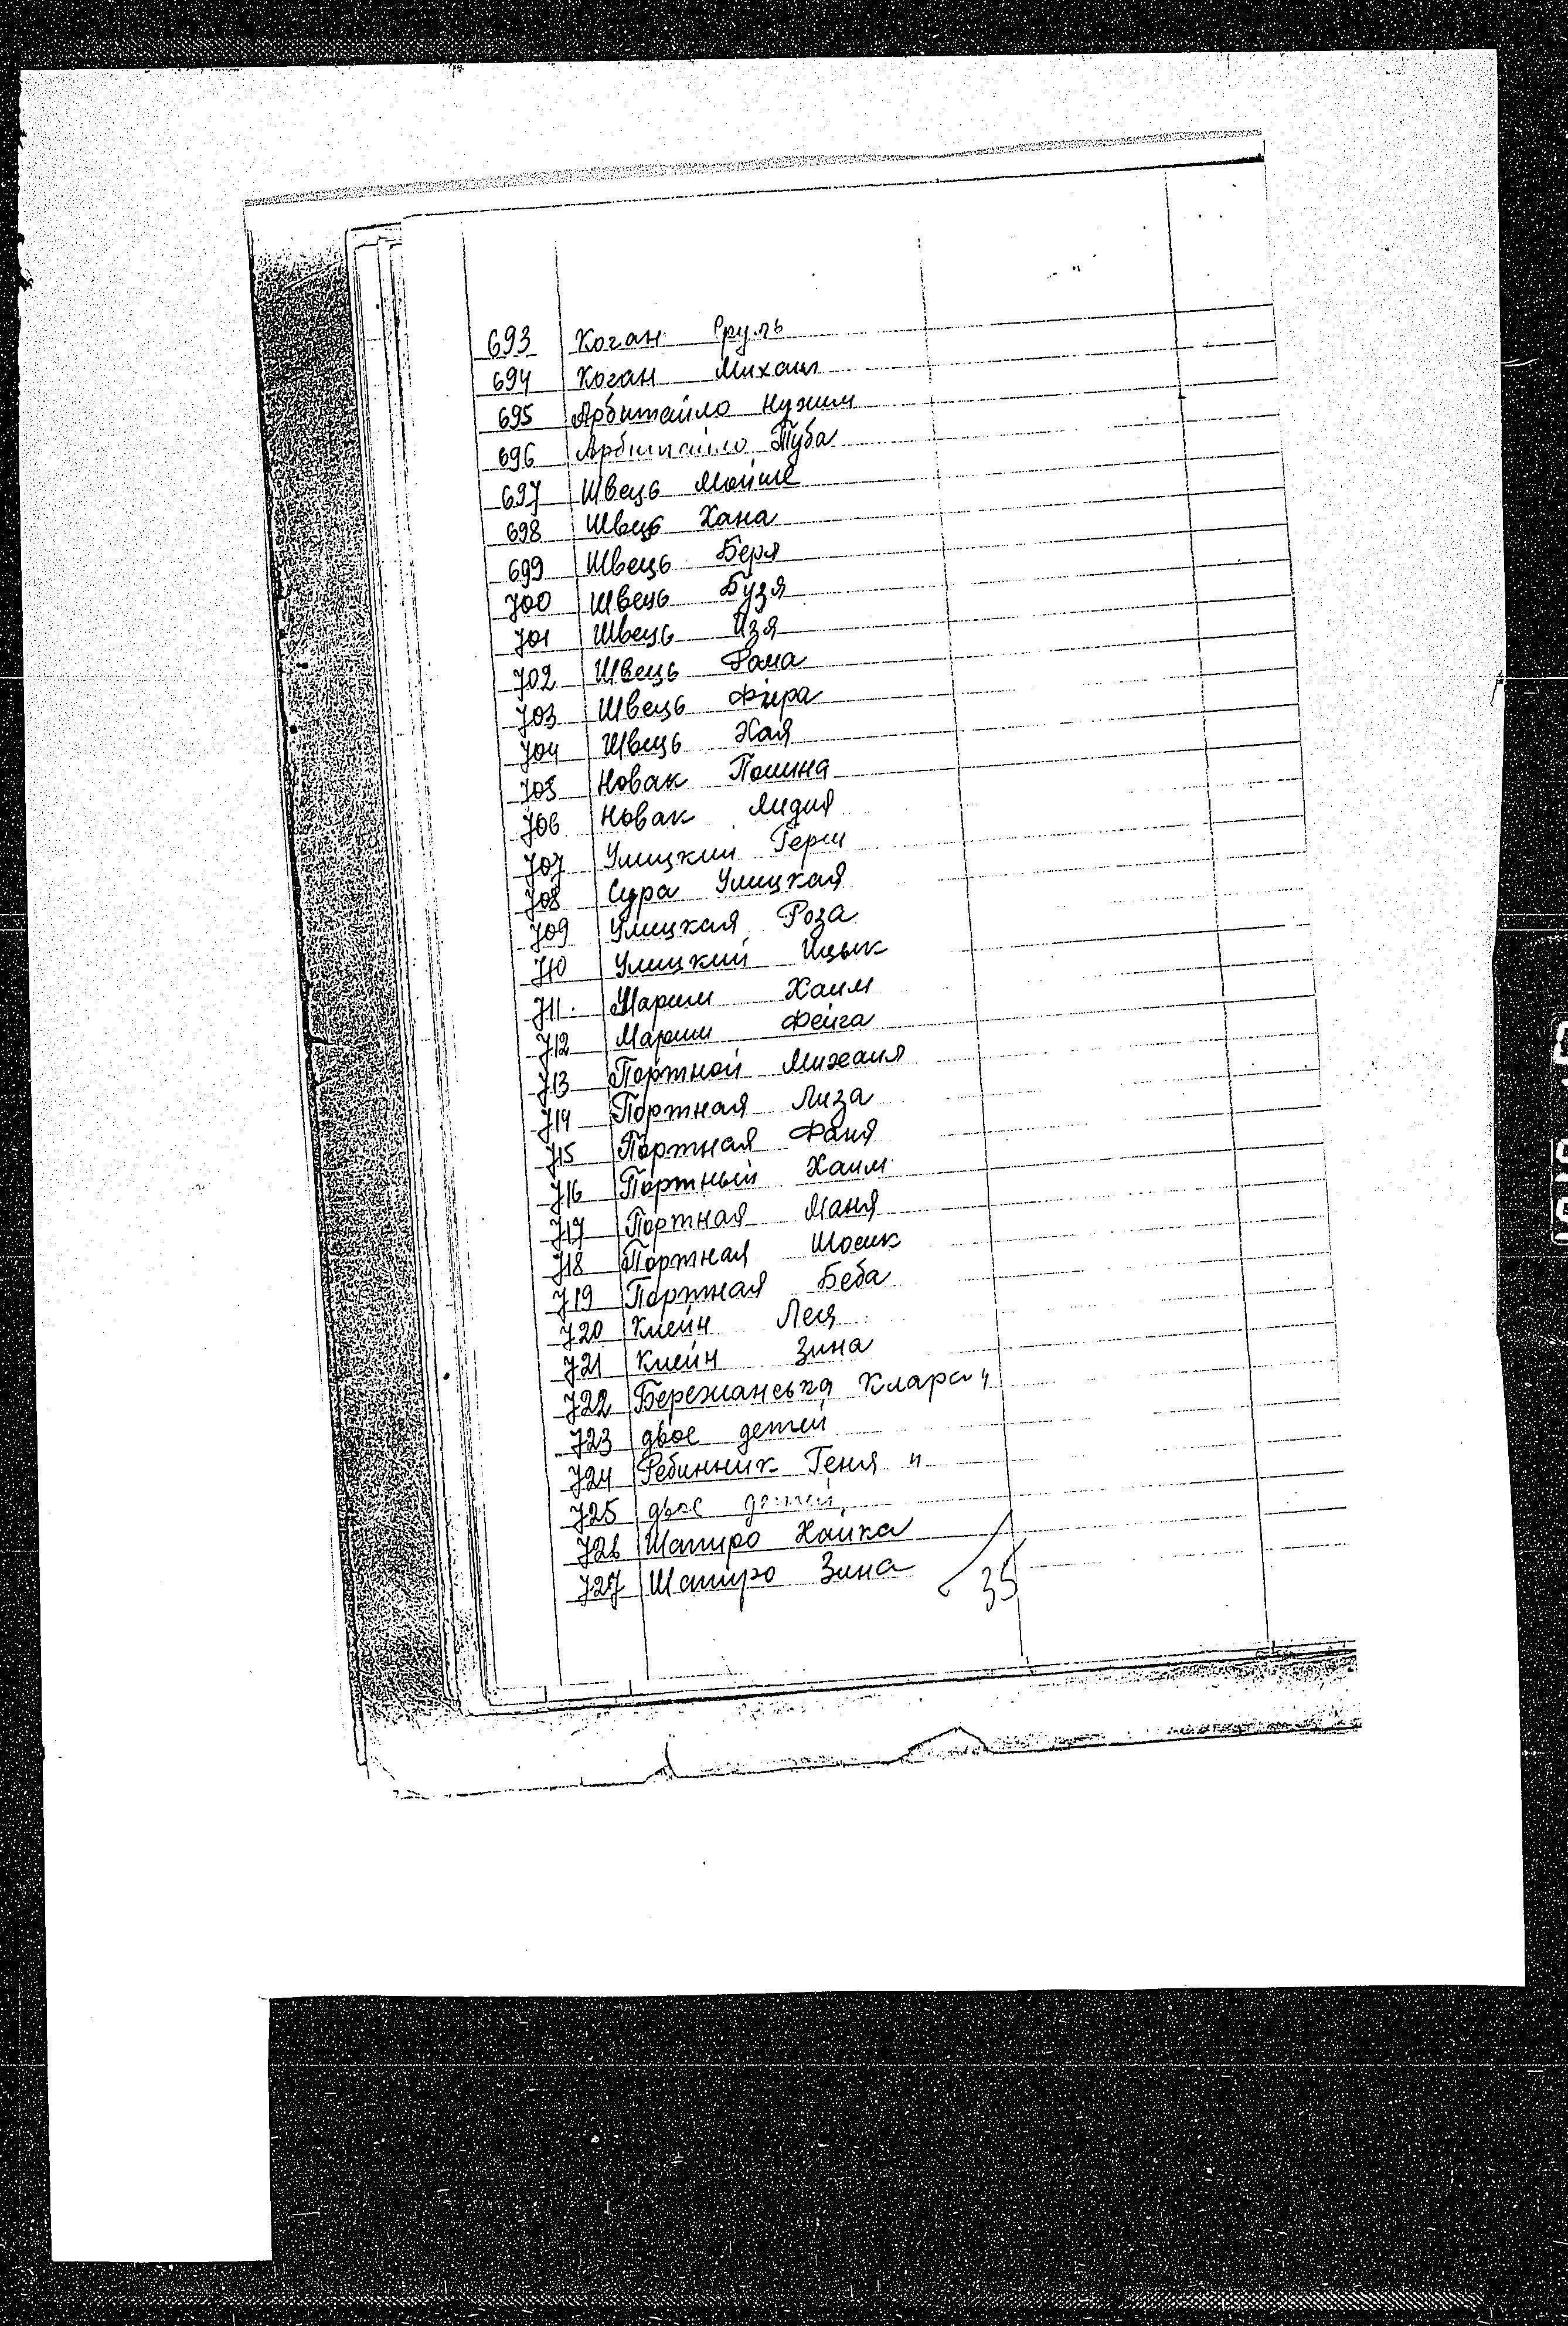 693 Коган Сруль
694 Коган Михаил
695 Арбитайло Нухим
696 Арбитайло Туба
697 Швець Мойше
698 Швець Хана
699 Швець Беря
700 Швець Бузя
701 Швець Изя
702 Швець
703 Швець Фира
704 Швець Хая
705 Новак Полина
706 Новак Лидия
707 Улицкий Герш
708 Сура Улицкая
709 Улицкая Роза
710 Улицкий Ицык
711 Хаим
712 Фейга
713 Портной Михаил
714 Портная Лиза
715 Портная Фаня
716 Портный Хаим
717 Портная Маня
718 Портная Шосик
719 Портная Беба
720 Клейн Леся
721 Клейн Зина
722 Бережанська Клара и
723 двое детей
724 Ребинник Геня и
725 двое детей
726 Шапиро Хайка
727 Шапиро Зина
35